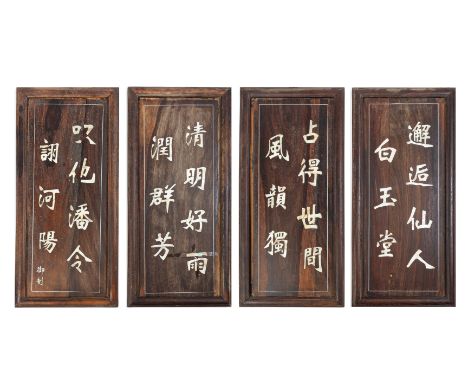 邂逅仙人
白玉堂
占得世間
風韻獨
清明好雨
潤群芳
咲他潘令
詡河陽
御制